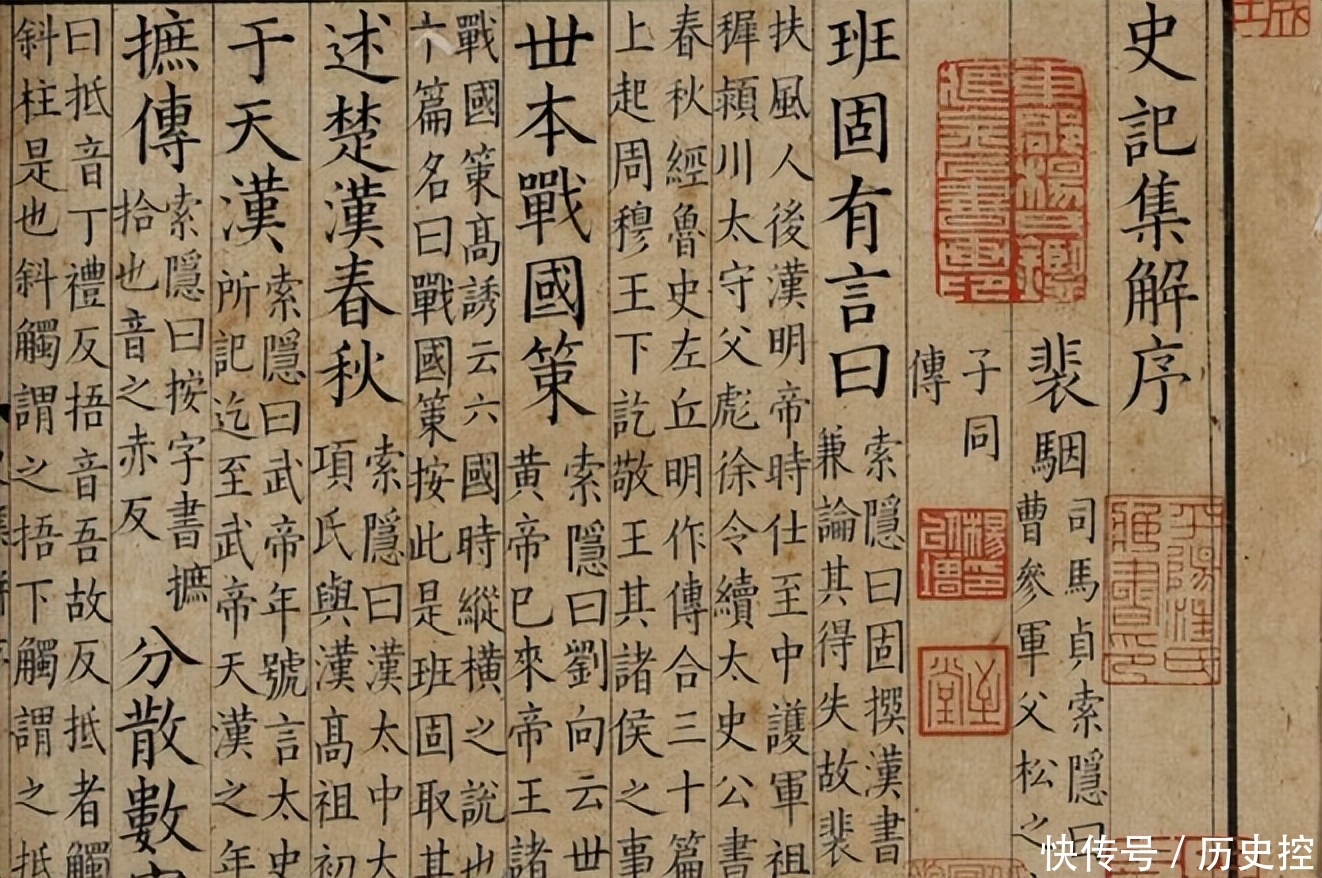 史記集解序
裴駰
司馬貞索隱曰
曹參軍父松之
子同
傳
班固有言曰
索隱曰固撰漢書
兼論其得失故裴
扶風人後漢明帝時仕至中護軍祖
穉潁川太守父彪徐令續太史公書
春秋經魯史左丘明作傳合三十篇
上起周穆王下訖敬王其諸侯之事
丗本戰國策
索隱曰劉向云丗
黄帝已來帝王諸
戰國策髙誘云六國時縱橫之說也
篇名曰戰國策按此是班固取其
述楚漢春秋
索隱曰漢太中大
項氏與漢髙祖初
于天漢
索隱曰武帝年號言太史
所記迄至武帝天漢之年
摭傳
索隱曰按字書摭
拾也音之赤反
分散數
曰抵音丁禮反捂音吾故反抵者觸
斜柱是也斜觸謂之捂下觸謂之抵
平陽汪氏藏書印
楊印以增
至堂
快传号 / 历史控